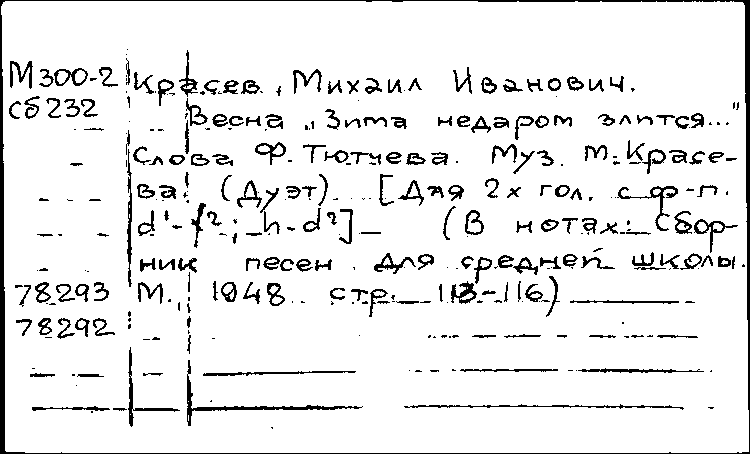 М300-2 Красев, Михаил Иванович.
Сб232 Весна „Зима недаром злится..."
Слова Ф. Тютчева. Муз. М. Красе-
ва. (Дуэт). [Для 2х гол. с ф-п.
d¹-f²; h-d²] (В нотах: Сбор-
ник песен для средней школы.
78293 М., 1948 стр. 113-116)
78292